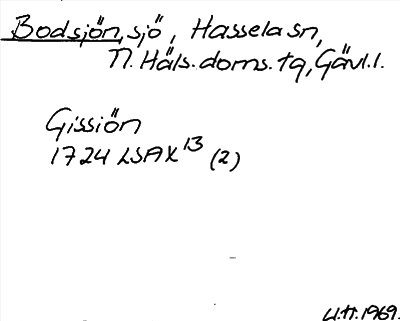 Bodsjön, sjö, Hassela sn,
N. Häls. doms. tg, Gävl. l.
Gissiön
1724 LSA X 13 (2)
U.H. 1969.